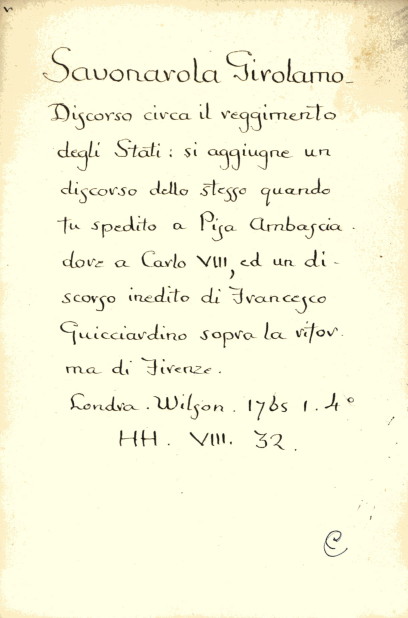 Savonarola Girolamo_
Discorso circa il reggimento
degli Stati : si aggiugne un
discorso dello stesso quando
fu spedito a Pisa Ambascia .
dore a Carlo VIII, ed un di -
scorso inedito di Francesco
Guicciardino sopra la rifor .
ma di Firenze .
Londra . Wilson . 1765 1 . 4°
HH . VIII . 32 .
C